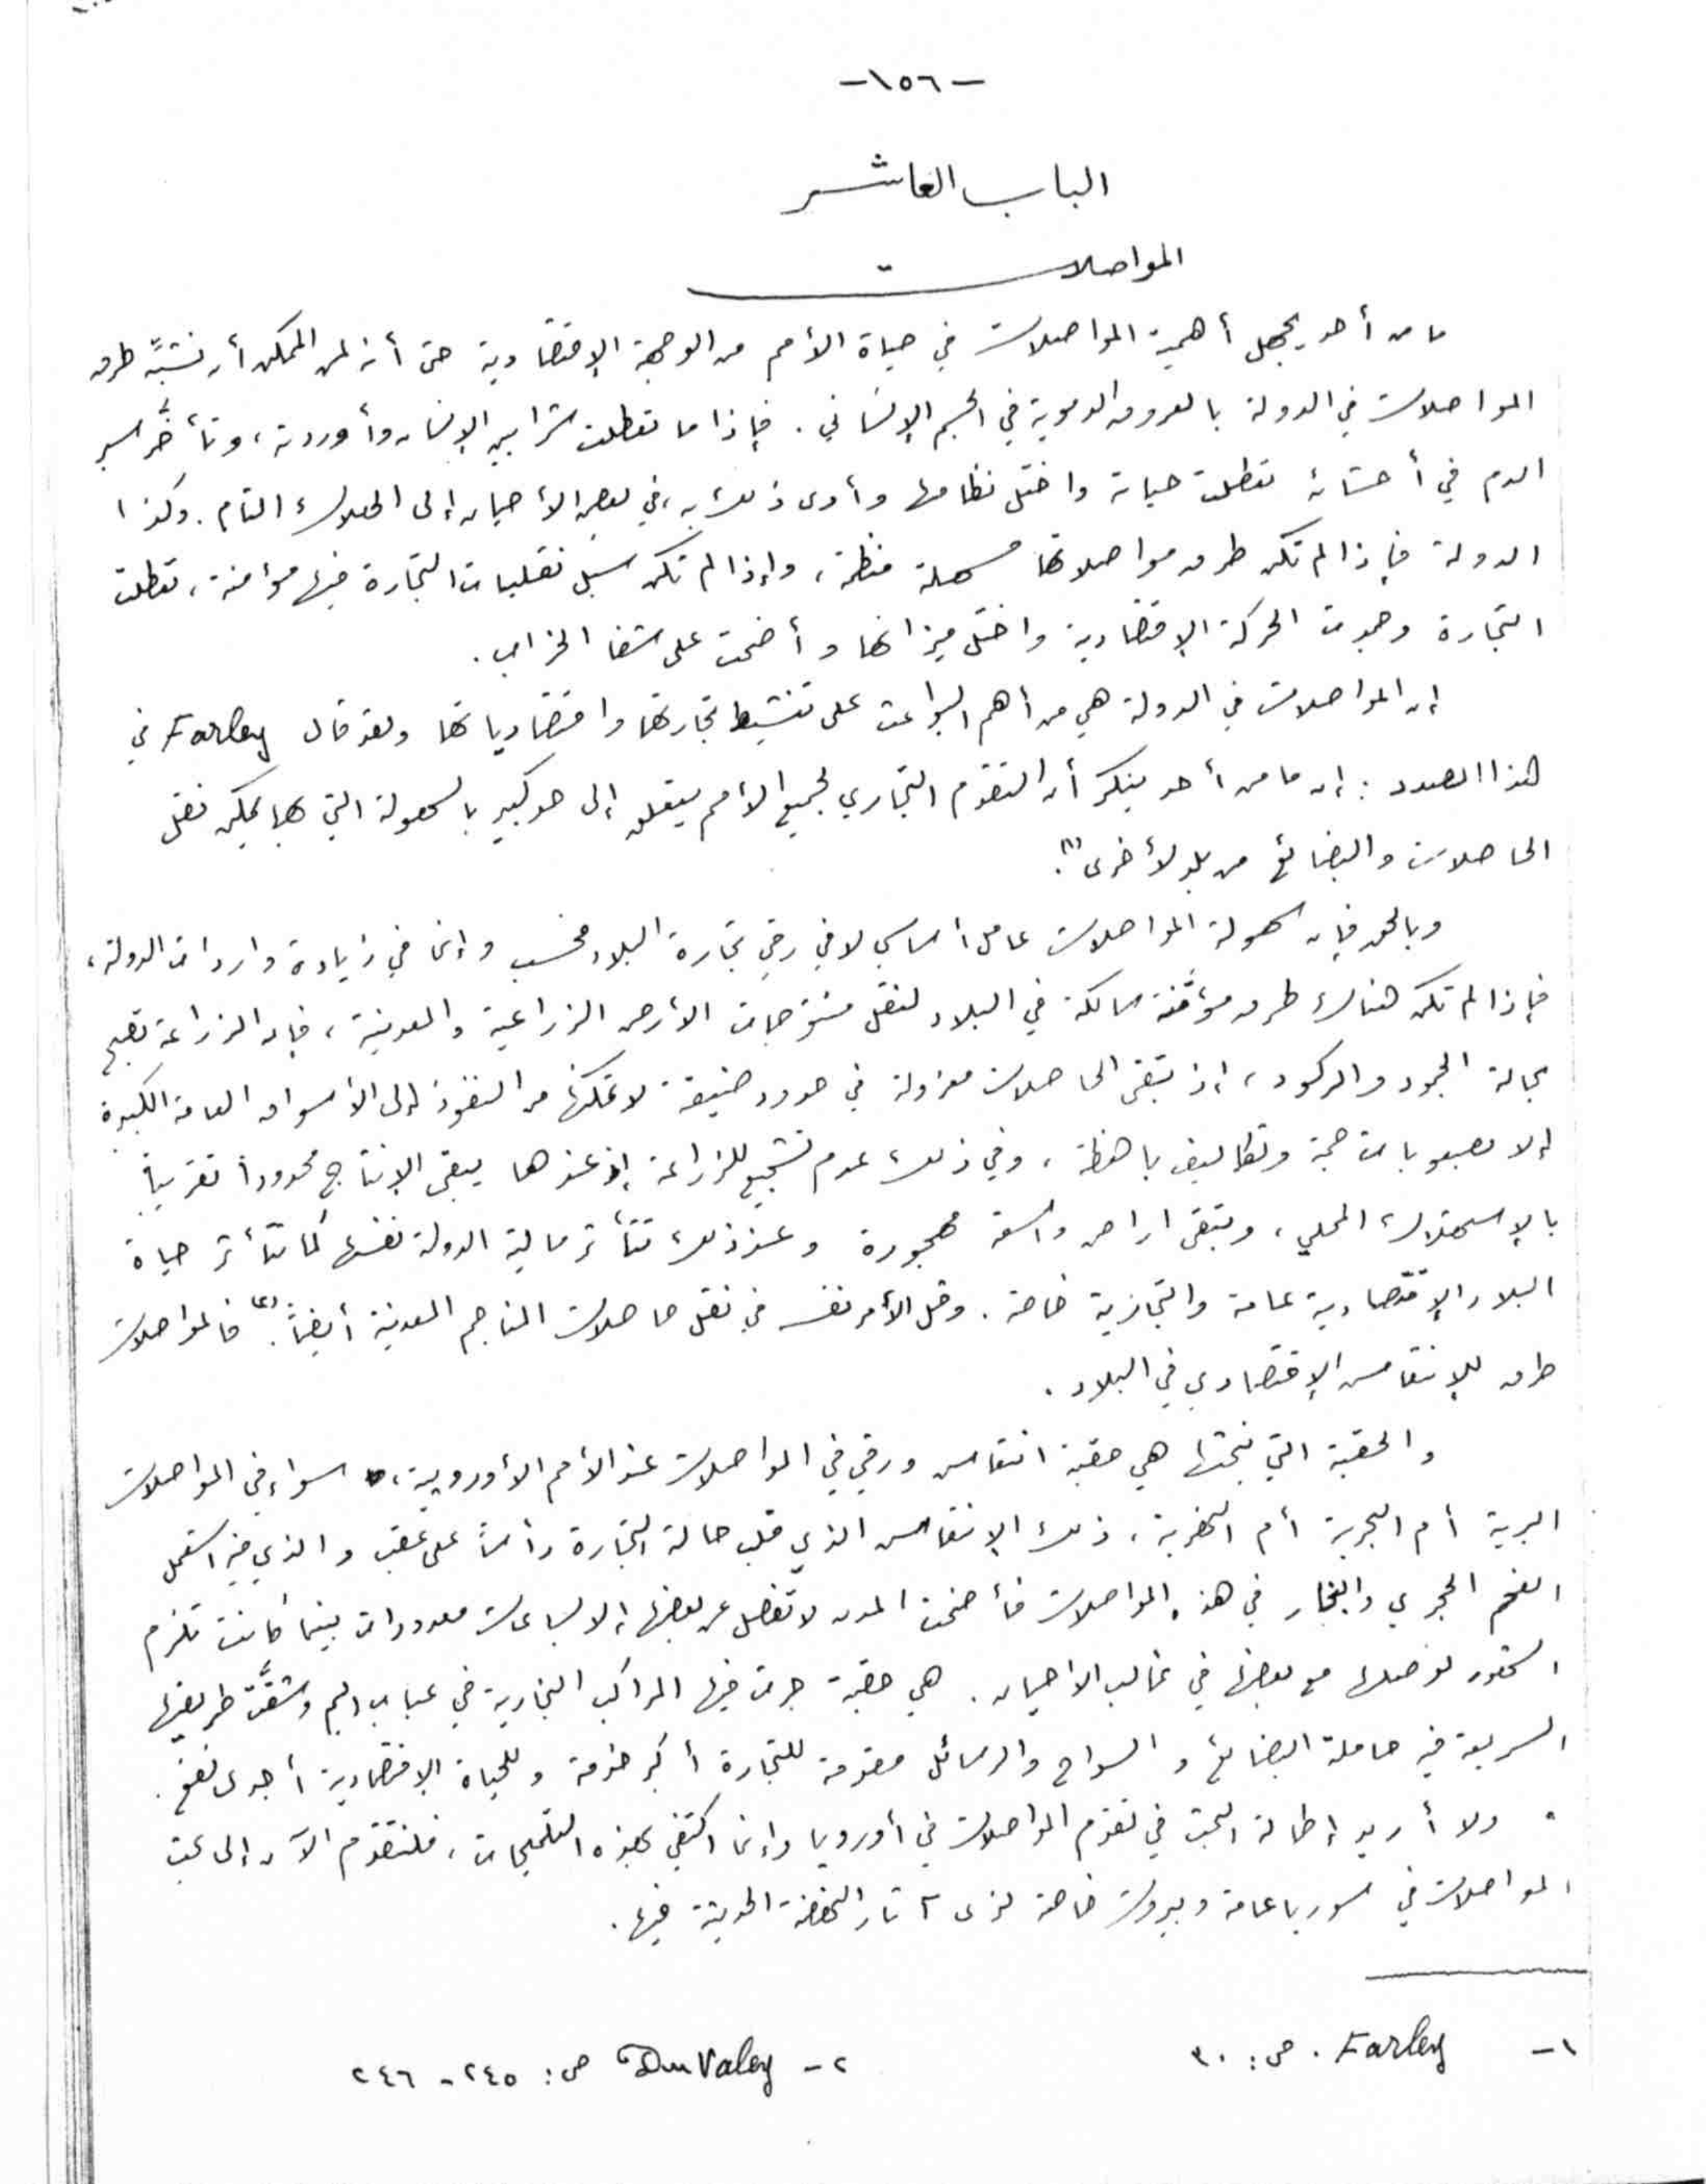 -١٥٦-
الباب العاشر
المواصلات
ما من أحد يجهل أهمية المواصلات في حياة الأمم من الوجهة الإقتصادية حتى أنه لمن الممكن أن نشبّه طرق
المواصلات في الدولة بالعروق الدموية في الجسم الإنساني. فإذا ما تعطلت شرايين الإنسان وأوردته، وتأخّر سير
الدم في أحشائه تعطلت حياته واختل نظامها وأدى ذلك به، في بعض الأحيان إلى الهلاك التام. وكذا
الدولة فإذا لم تكن طرق مواصلاتها سهلة منظمة، وإذا لم تكن سبل نقليات التجارة فيها مؤمنة، تعطلت
التجارة وجمدت الحركة الإقتصادية واختل ميزانها وأضحت على شفا الخراب.
إن المواصلات في الدولة هي من أهم البواعث على تنشيط تجارتها واقتصادياتها ولقد قال Farley في
هذا الصدد: إن ما من أحد ينكر أن التقدم التجاري لجميع الأمم يتعلق إلى حد كبير بالسهولة التي بها يمكن نقل
الحاصلات والبضائع من بلد لأخرى"(١).
وبالحق فإن سهولة المواصلات عامل أساسي لا في رقي تجارة البلاد فحسب وإنما في زيادة واردات الدولة،
فإذا لم تكن هناك طرق مؤمّنة سالكة في البلاد لنقل منتوجات الأرض الزراعية والمعدنية، فإن الزراعة تصبح
بحالة الجمود والركود، إذ تبقى الحاصلات معزولة في حدود ضيقة لا تمكنها من النفوذ إلى الأسواق العامة الكبيرة
إلا بصعوبات جمة وتكاليف باهظة، وفي ذلك عدم تشجيع للزراعة إذ عندها يبقى الإنتاج محدوداً تقريباً
بالإستهلاك المحلي، وتبقى اراض واسعة مهجورة وعند ذلك تتأثر مالية الدولة نفسها كما تتأثر حياة
البلاد الإقتصادية عامة والتجارية خاصة. وقل الأمر نفسه في نقل حاصلات المناجم المعدنية أيضاً.(٢) فالمواصلات
طرق للإنتعاش الإقتصادي في البلاد.
والحقبة التي نبحثها هي حقبة انتعاش ورقي في المواصلات عند الأمم الأوروبية، سواء في المواصلات
البرية أم البحرية أم النهرية، ذلك الإنتعاش الذي قلب حالة التجارة رأساً على عقب والذي فيه استعمل
الفحم الحجري والبخار في هذه المواصلات فأضحت المدن لا تفصل عن بعضها إلا لساعات معدودات بينما كانت تلزم
الشهور لوصلها مع بعضها في غالب الاحيان. هي حقبة جرت فيها المراكب البخارية في عباب اليم وشقّت طريقها
السريعة فيه حاملة البضائع والسواح والرسائل مقدمة للتجارة أكبر خدمة وللحياة الإقتصادية أجدى نفع.
ولا أريد إطالة البحث في تقدم المواصلات في أوروبا وإنما اكتفي بهذه التلميحات، فلنتقدم الآن إلى بحث
المواصلات في سوريا عامة وبيروت خاصة لنرى آثار النهضة الحديثة فيها.
١- Farley. ص: ٣٠
٢- Du Valey ص: ٢٤٥ - ٢٤٦